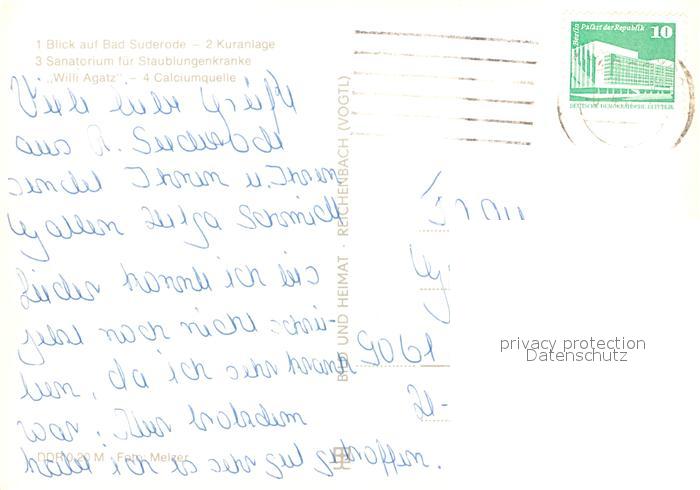 1 Blick auf Bad Suderode – 2 Kuranlage
3 Sanatorium für Staublungenkranke
„Willi Agatz" – 4 Calciumquelle
Viele liebe Grüße
aus B. Suderode
sendet Ihnen u. Ihrem
Gatten Helga Schmidt
Leider konnte ich bis
jetzt noch nicht schrei-
ben, da ich sehr krank
war. Hier trotzdem
habe ich es sehr gut getroffen.
DDR 0,20 M · Foto: Melzer
BILD UND HEIMAT · REICHENBACH (VOGTL)
Berlin Palast der Republik 10
DEUTSCHE DEMOKRATISCHE REPUBLIK
Frau
9061
privacy protection
Datenschutz